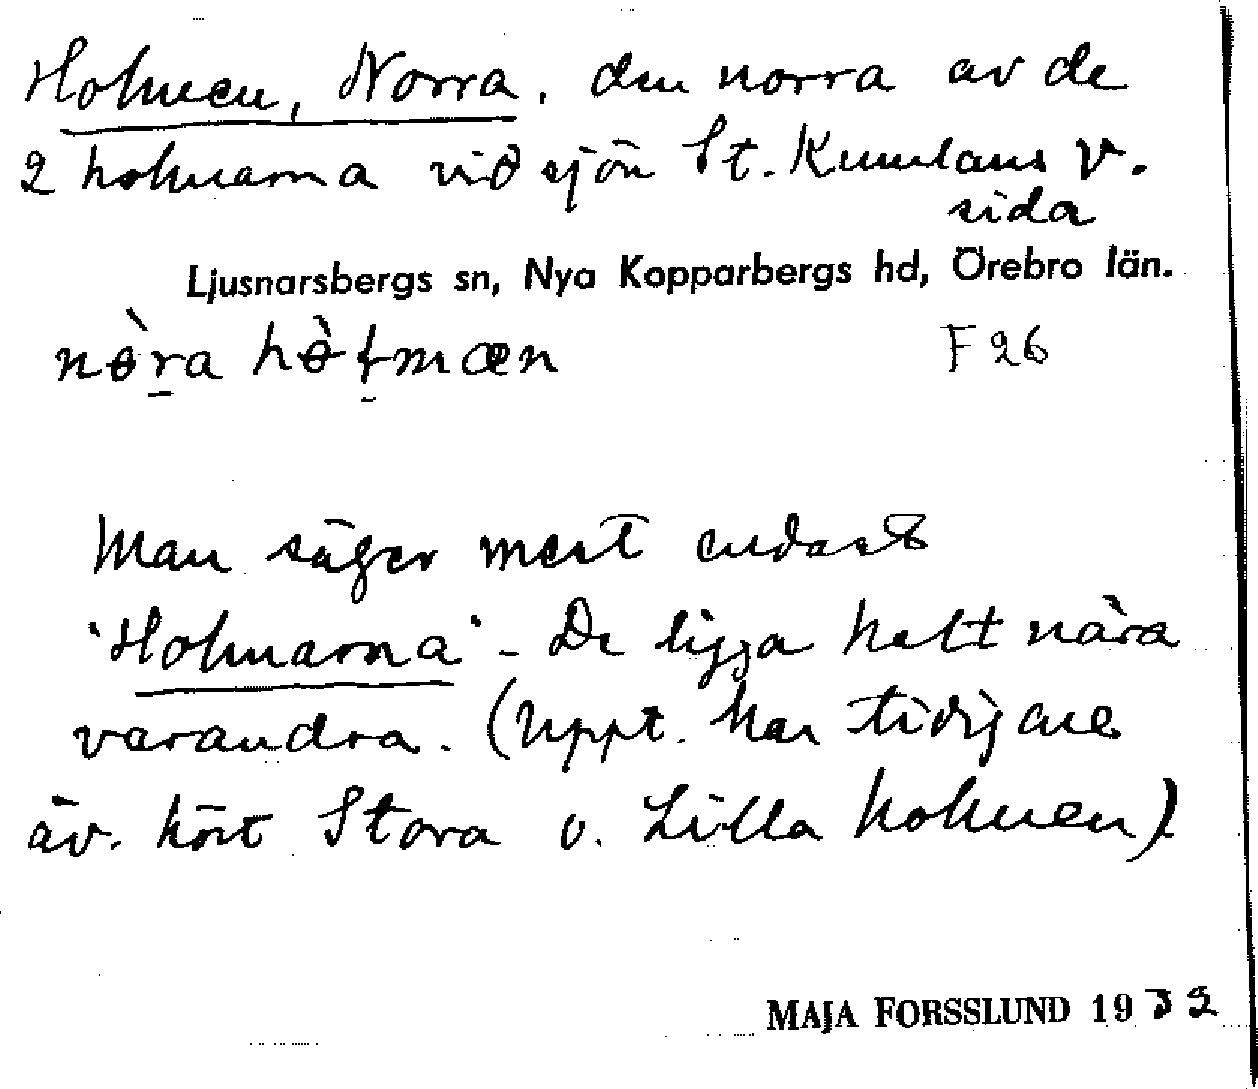 Holmen, Norra, den norra av de
2 holmarna vid sjön St. Kumlans V.
sida
Ljusnarsbergs sn, Nya Kopparbergs hd, Örebro län.
nɵ̀ra hɵ̀ƚmæn F 26
Man säger mest endast
"Holmarna" - De ligga helt nära
varandra. (Uppt. har tidigare
äv. hört Stora o. Lilla holmen)
MAJA FORSSLUND 1932